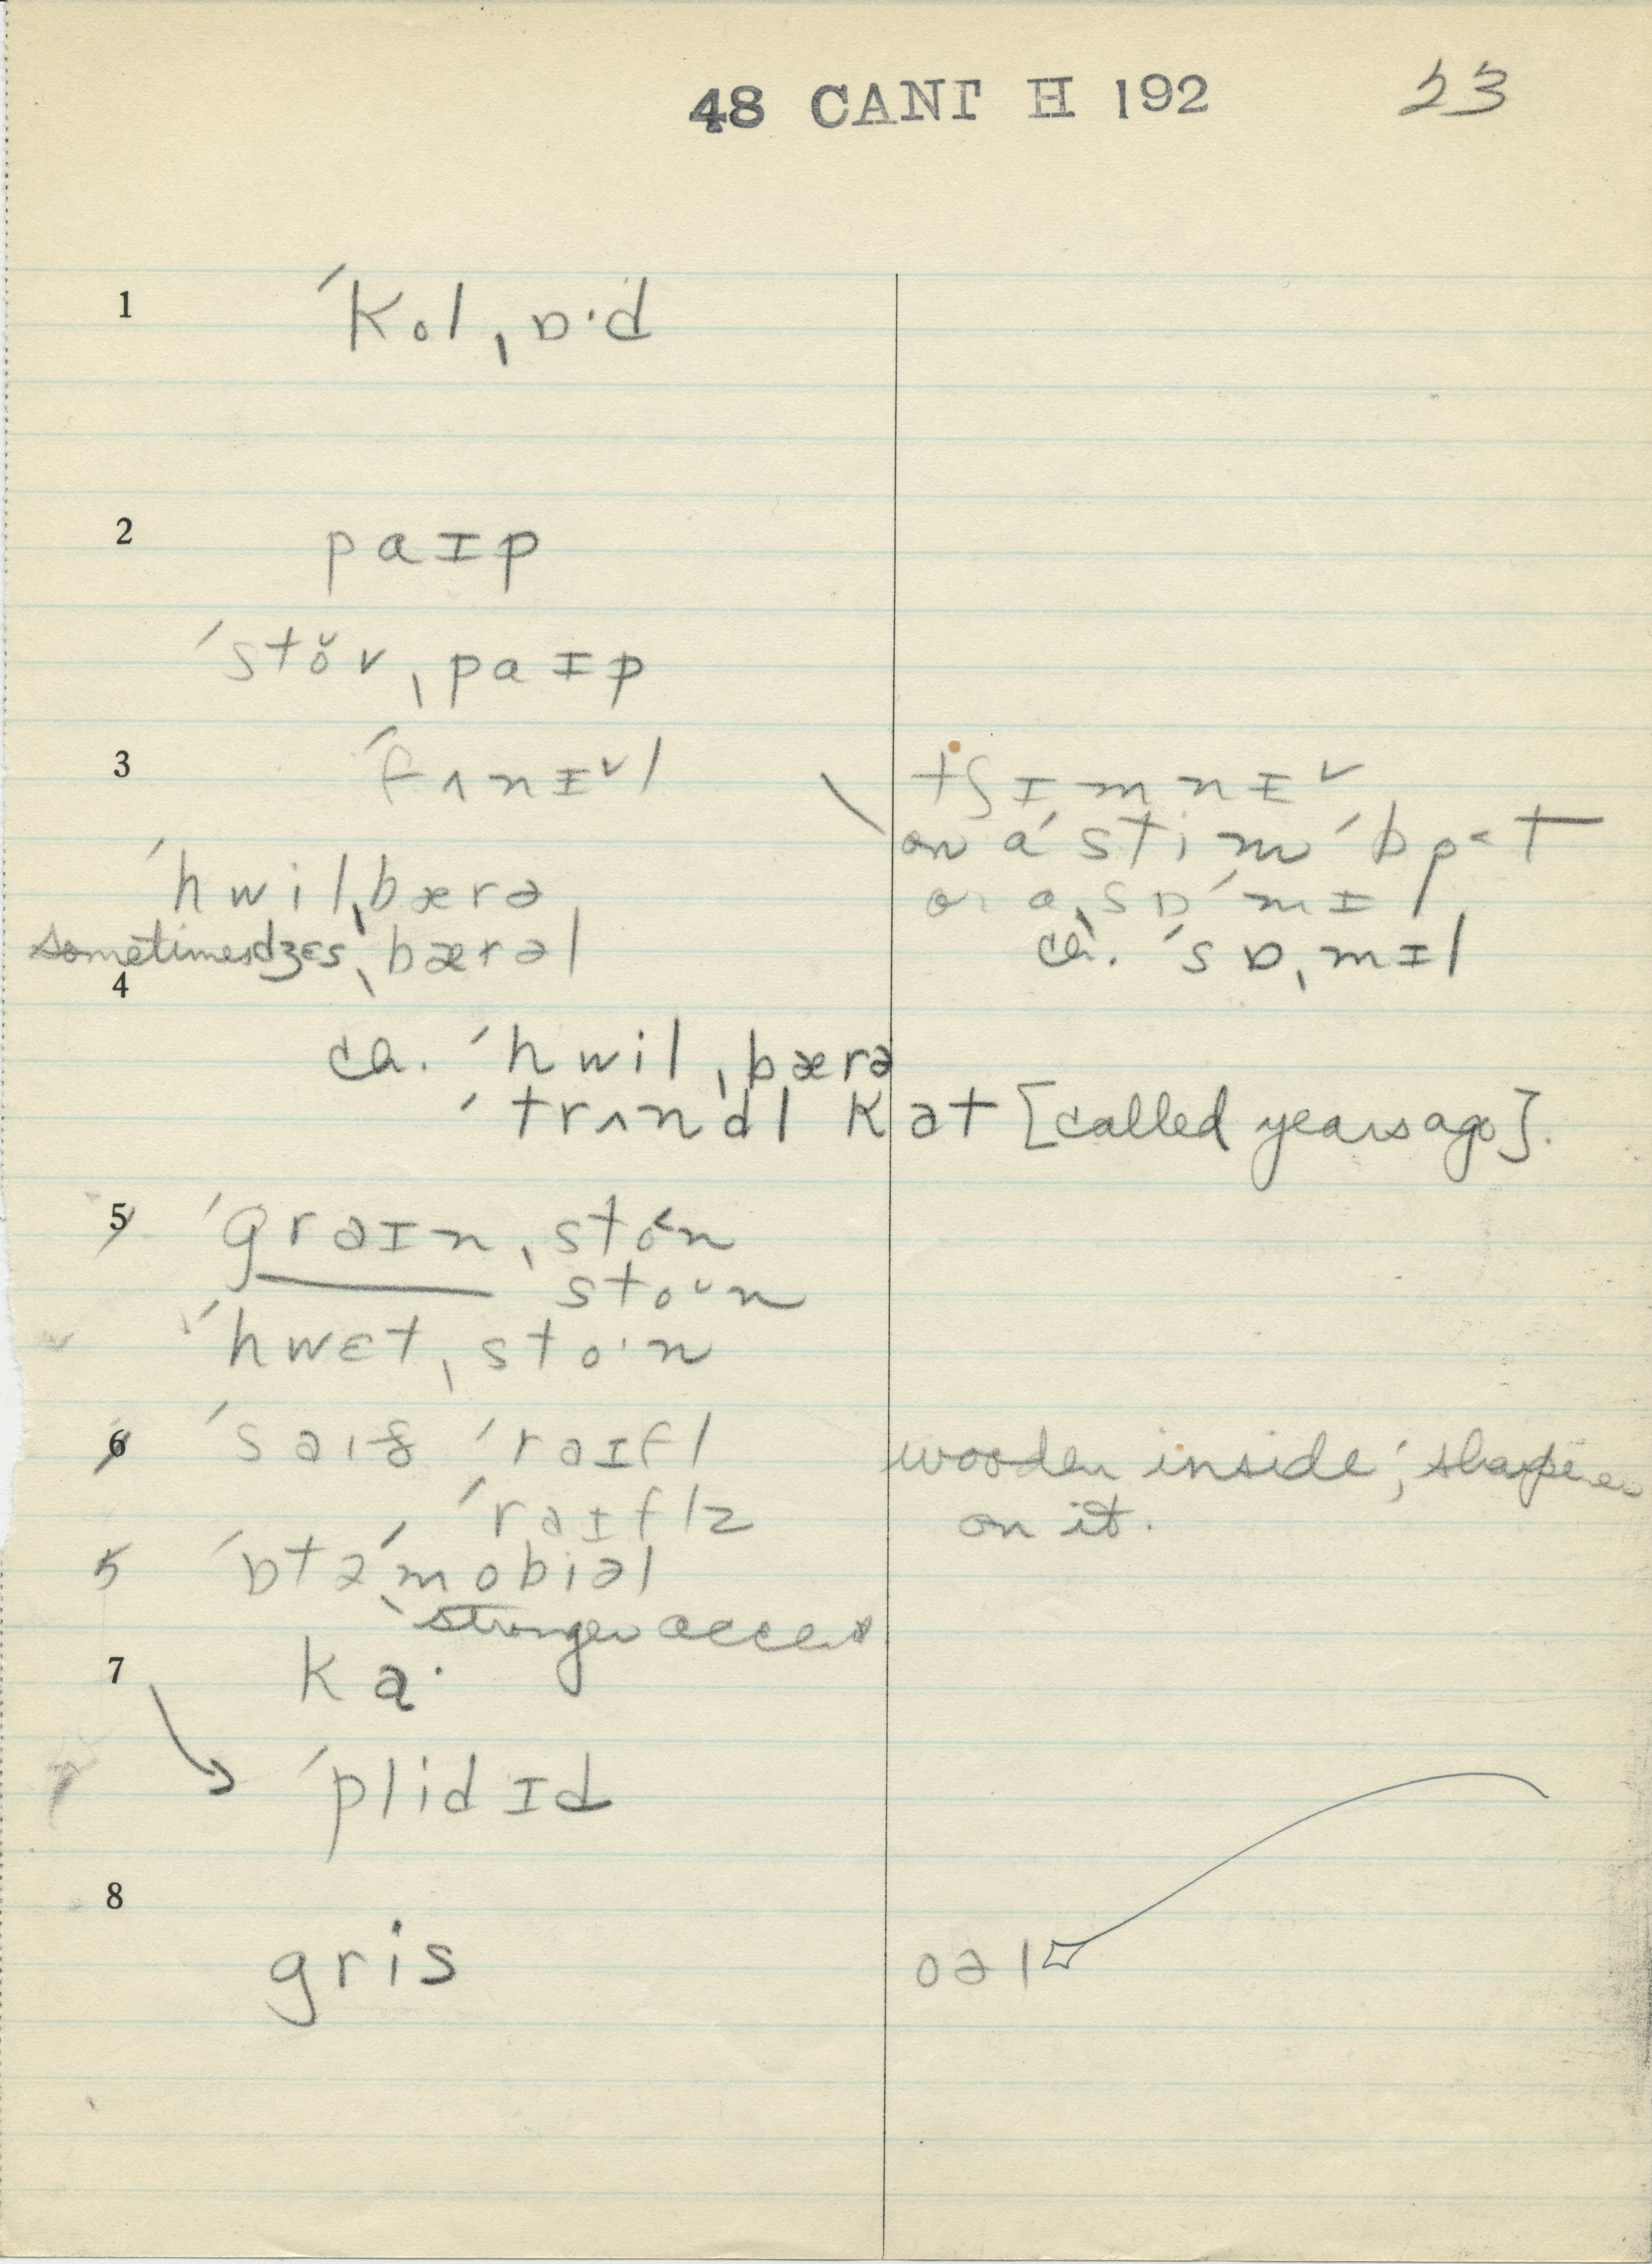 48 CANT H 192 23
1 ˈkolˌɒ·d
2 paɪp
ˈstoˇvˌpaɪp
3 ˈfʌnɪˇl
tʃɪmnɪˇ
on a ˈstimˈbo˂t
or a ˌsɒˈmɪl
ca. ˈsɒˌmɪl
ˈhwilˌbærə
sometimes dʒɛsˌbærəl
4
ca. ˈhwilˌbærə
ˈtrʌndl kat [called years ago].
5 ˈgraɪnˌsto˂n
stoˇn
ˈhwɛtˌsto·n
6 ˈraɪfl
wooden inside; sharpener
ˈraɪflz
on it.
5 ˈɒtəˈmobiəl
stronger accent
7 ka·
ˈplidɪd
8
gris
oəl